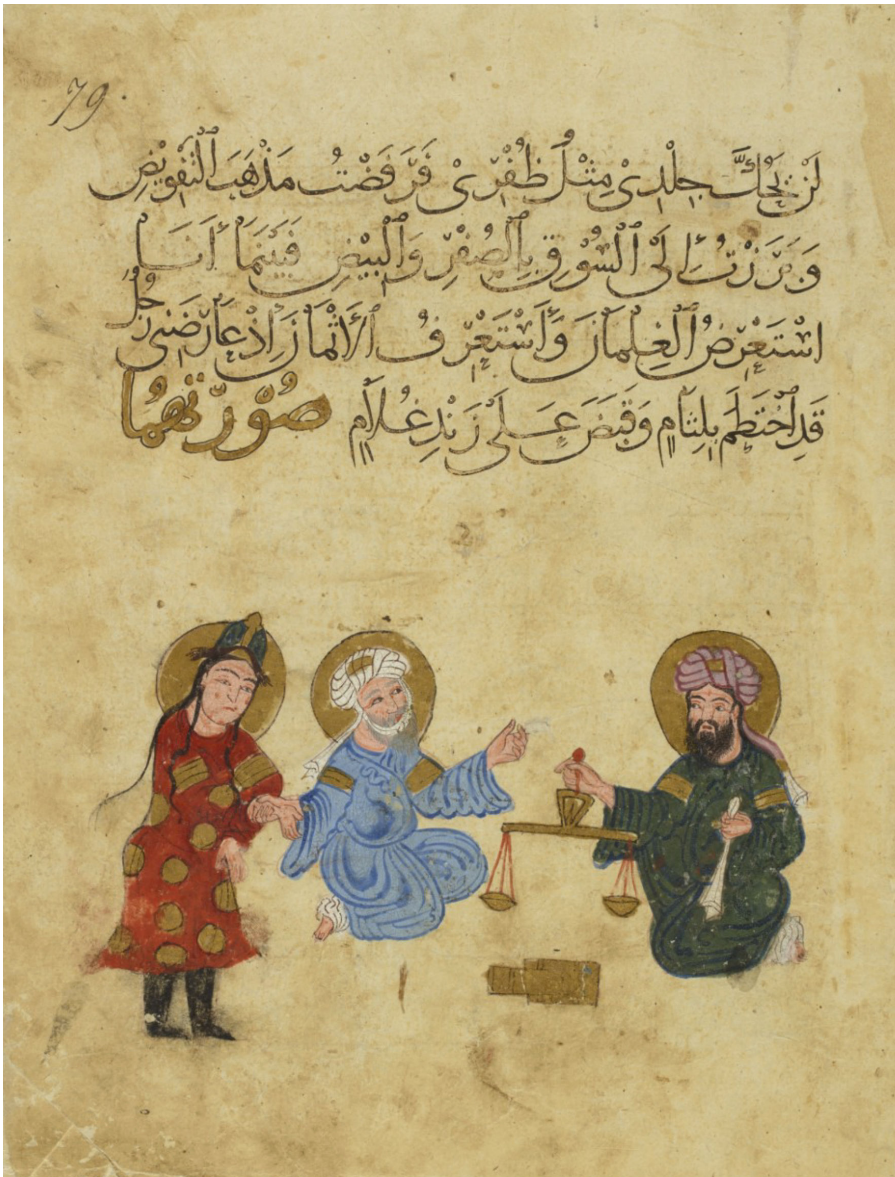 79.
لَنْ يَحُكَّ جِلْدِيْ مِثْلُ ظُفْرِيْ فَرَفَضْتُ مَذْهَبَ التَّفْوِيْضِ
وَبَرَزْتُ إِلَى السُّوْقِ بِالصُّفْرِ وَالْبِيْضِ فَبَيْنَمَا أَنَا
اسْتَعْرِضُ الْغِلْمَانَ وَأَسْتَعْرِفُ الْأَثْمَانَ إِذْ عَارَضَنِيْ رَجُلٌ
قَدِ اخْتَطَمَ بِلِثَامٍ وَقَبَضَ عَلَى زَنْدِ غُلَامٍ صُوْرَتهُمَا